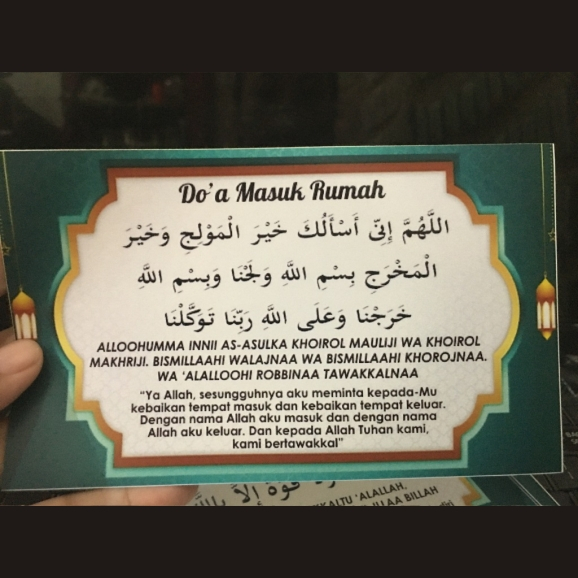 Do'a Masuk Rumah
اللَّهُمَّ إِنِّى أَسْأَلُكَ خَيْرَ الْمَوْلِجِ وَخَيْرَ
الْمَخْرَجِ بِسْمِ اللَّهِ وَلَجْنَا وَبِسْمِ اللَّهِ
خَرَجْنَا وَعَلَى اللَّهِ رَبِّنَا تَوَكَّلْنَا
ALLOOHUMMA INNII AS-ASULKA KHOIROL MAULIJI WA KHOIROL
MAKHRIJI. BISMILLAAHI WALAJNAA WA BISMILLAAHI KHOROJNAA.
WA 'ALALLOOHI ROBBINAA TAWAKKALNAA
"Ya Allah, sesungguhnya aku meminta kepada-Mu
kebaikan tempat masuk dan kebaikan tempat keluar.
Dengan nama Allah aku masuk dan dengan nama
Allah aku keluar. Dan kepada Allah Tuhan kami,
kami bertawakkal"
قُوَّةَ إِلاَّ بِاللَّهِ
'ALALLAH,
BILLAH